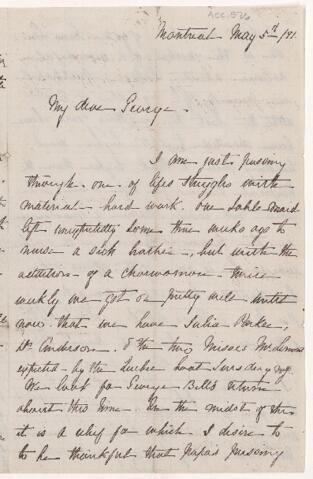 Acc. 526
Montreal May 5th/81.
My dear George.
I am just passing
through one of lifes struggles with
material hard work. One table maid
left some three weeks ago to
nurse a sick brother, but with the
addition of a charwoman thrice
weekly we got on pretty well until
now that we have Julia Parker,
Dr. Anderson & the two Misses
expected by the Quebec boat
We look for George Bell's return
about this time. In the midst of this
it is a relief for which I desire to
to be thankful that Papa's passing